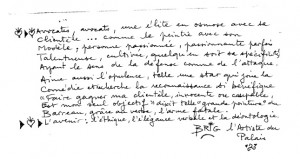 Avocats, avocats, une élite en osmose avec sa
Clientèle... comme le peintre avec son
Modèle, personne passionnée, passionnante parfois
Talentueuse, cultivée, quelque en soit sa spécificité
Ayant le sens de la défense comme de l'attaque,
Aime aussi l'opulence, telle une star qui joue la
Comédie et recherche la reconnaissance si bénéfique
"Faire gagner ma clientèle, innocente ou coupable,
Est mon seul objectif" disait telle "grande pointure" du
Barreau, grâce au verbe, l'arme fatale.
L'avenir, l'éthique, l'élégance verbale et la déontologie
BRIG l'Artiste du
Palais
'23